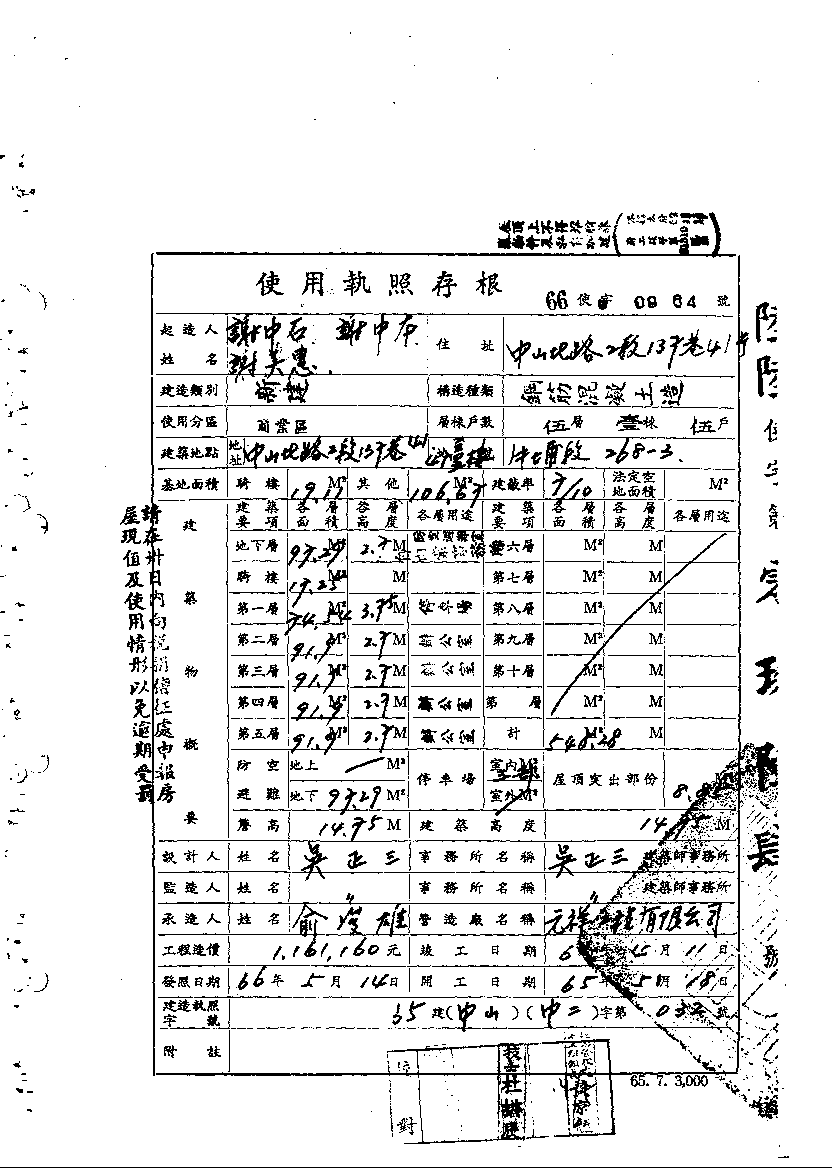 使用執照存根
66 使 字 0964 號
起造人姓名 謝中石 謝中 謝美惠 住址 中山北路2段137巷41
建造類別 新建 構造種類 鋼筋混凝土造
使用分區 商業區 層棟戶數 伍層 壹棟 伍戶
建築地點 地址 中山北路2段137巷 段 268-3
基地面積 騎樓 19.17 M² 其他 106.67 M² 建蔽率 7/10 法定空地面積 M²
建築物概要
建築要項 各層面積 各層高度 各層用途 建築要項 各層面積 各層高度 各層用途
地下層 97.29 M² 2.7 M 第六層 M² M
騎樓 17.25 M² M 第七層 M² M
第一層 74.54 M² 3.75 M 第八層 M² M
第二層 91.7 M² 2.7 M 辦公室 第九層 M² M
第三層 91.7 M² 2.7 M 辦公室 第十層 M² M
第四層 91.7 M² 2.7 M 辦公室 第 層 M² M
第五層 91.7 M² 2.7 M 辦公室 計 548.28 M²
防空避難 地上 M² 停車場 室內 M² 屋頂突出部份 M²
地下 97.29 M² 室外 M²
簷高 14.75 M 建築高度 14.75 M
設計人 姓名 吳正三 事務所名稱 吳正三 建築師事務所
監造人 姓名 〃 事務所名稱 〃 建築師事務所
承造人 姓名 俞 雄 營造廠名稱 元祥工程有限公司
工程造價 1,161,160 元 竣工日期 月 11 日
發照日期 66 年 5 月 14 日 開工日期 65 年 5 月 18 日
建造執照字號 65 建(中山)(中二)字第 032 號
附註
65. 7. 3,000
請在卅日內向稅捐稽征處申報房
屋現值及使用情形以免逾期受罰
對